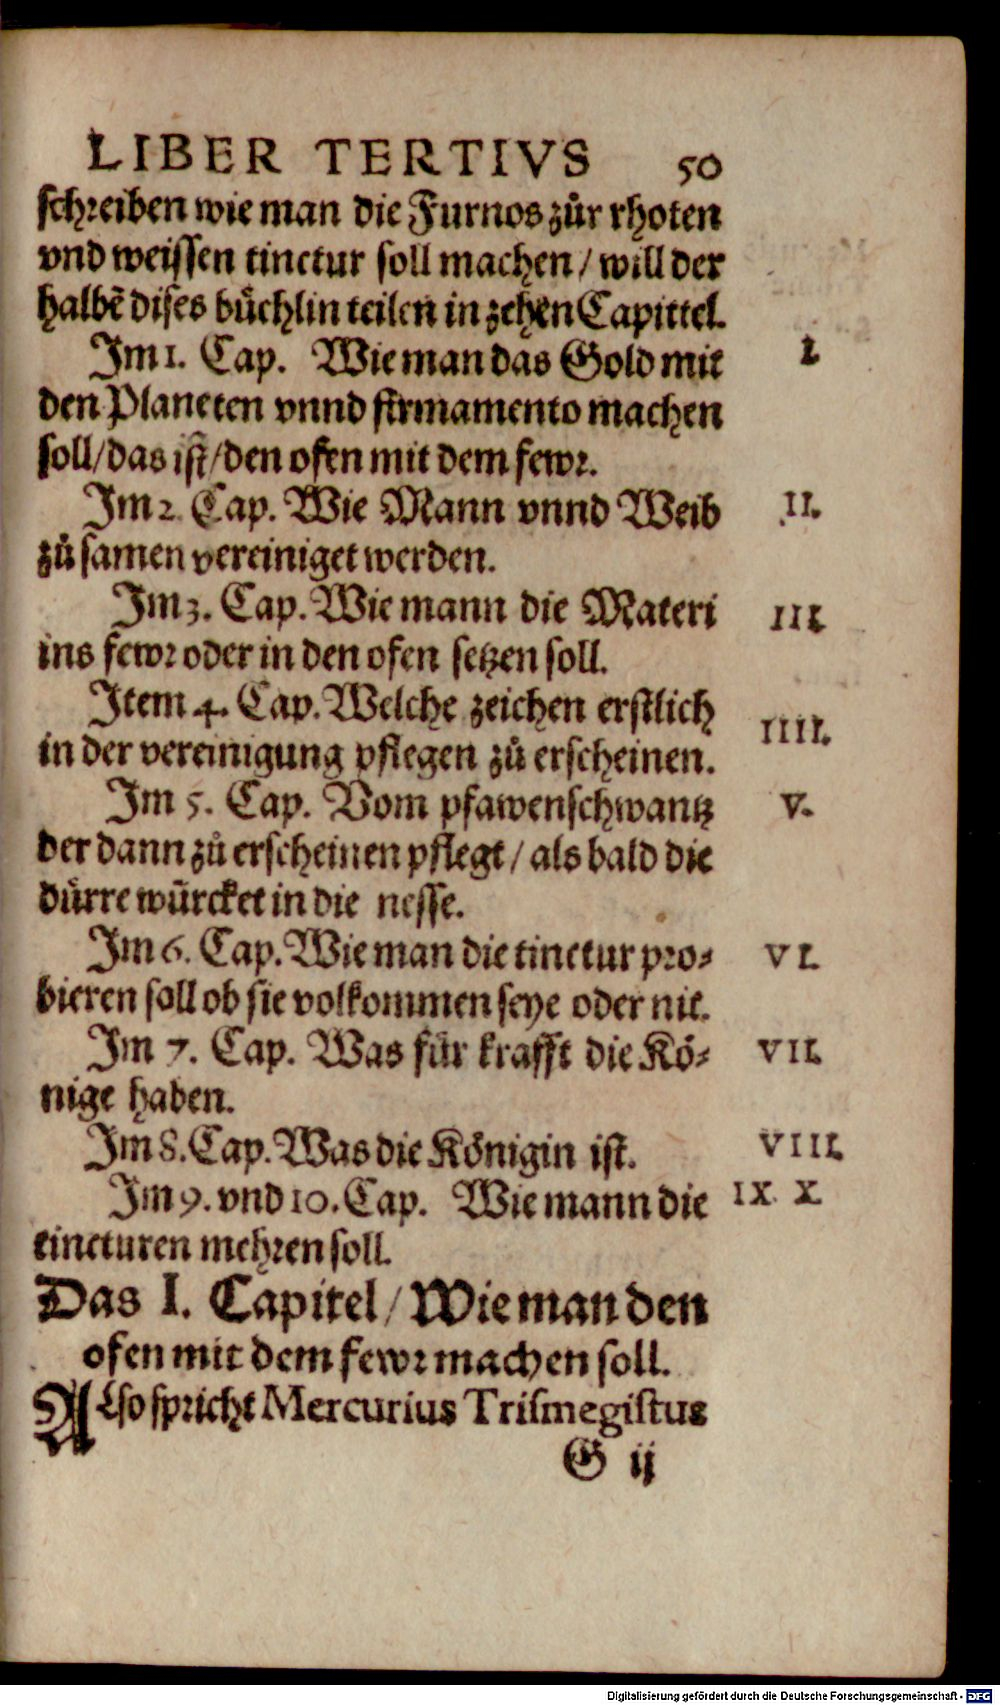 LIBER TERTIVS 50
schreiben wie man die Furnos zůr rhoten
vnd weissen tinctur soll machen / will der
halbẽ dises bůchlin teilen in zehen Capittel.
Im 1. Cap. Wie man das Gold mit
I.
den Planeten vnnd firmamento machen
soll / das ist / den ofen mit dem fewr.
Im 2. Cap. Wie Mann vnnd Weib
II.
zů samen vereiniget werden.
Im 3. Cap. Wie mann die Materi
III.
ins fewr oder in den ofen setzen soll.
Item 4. Cap. Welche zeichen erstlich
IIII.
in der vereinigung pflegen zů erscheinen.
Im 5. Cap. Vom pfawenschwantz
V.
der dann zů erscheinen pflegt / als bald die
dürre würcket in die nesse.
Im 6. Cap. Wie man die tinctur pro⸗
VI.
bieren soll ob sie volkommen seye oder nit.
Im 7. Cap. Was für krafft die Kö⸗
VII.
nige haben.
Im 8. Cap. Was die Königin ist.
VIII.
Im 9. vnd 10. Cap. Wie mann die
IX X
tincturen mehren soll.
Das I. Capitel / Wie man den
ofen mit dem fewr machen soll.
ALso spricht Mercurius Trismegistus
G ij
Digitalisierung gefördert durch die Deutsche Forschungsgemeinschaft - DFG